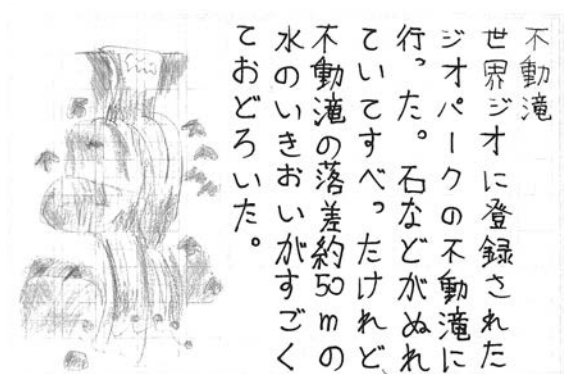 不動滝
世界ジオに登録された
ジオパークの不動滝に
行った。石などがぬれ
ていてすべったけれど、
不動滝の落差約50mの
水のいきおいがすごく
ておどろいた。